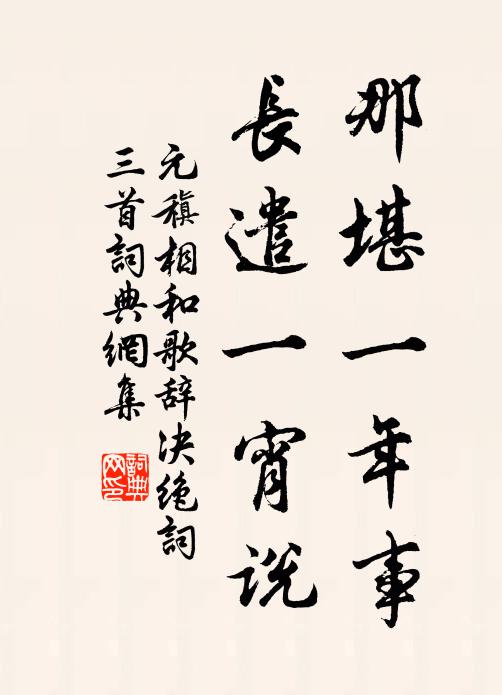 那堪一年事
長遣一宵说
元稹相和歌辞决绝詞
三首詞典網集
詞典网印